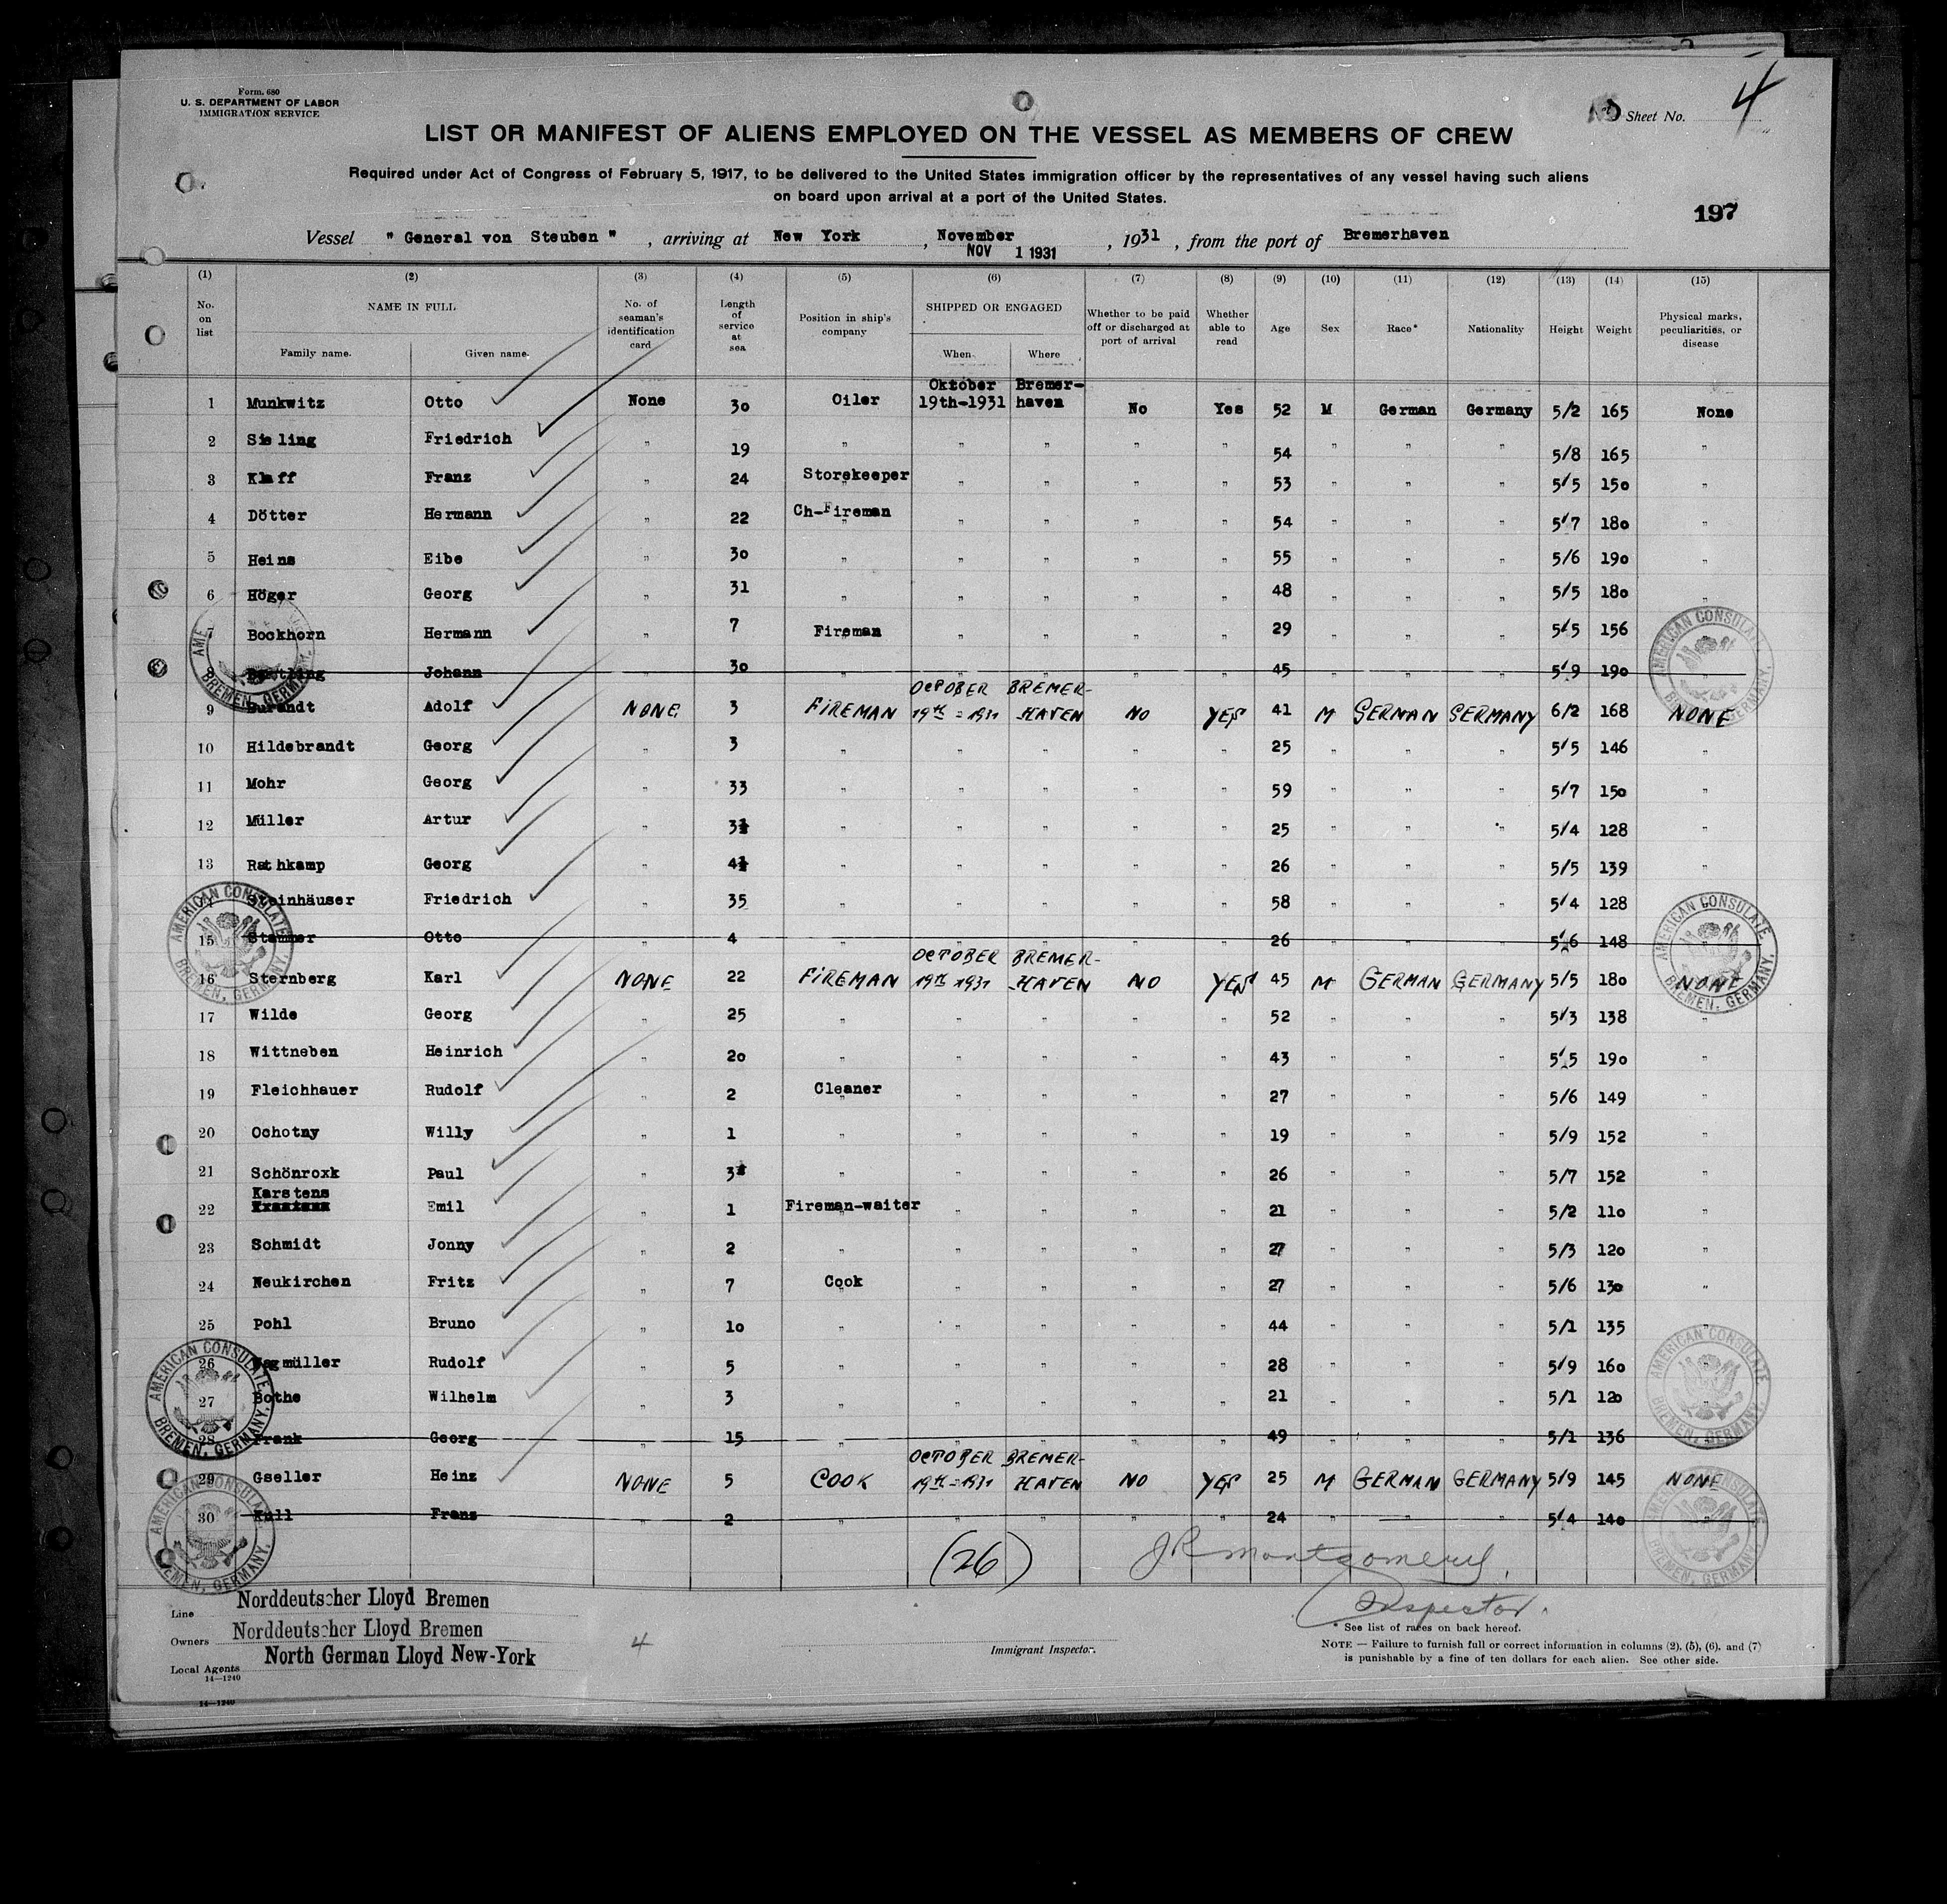 Form. 680
U. S. DEPARTMENT OF LABOR
IMMIGRATION SERVICE
Sheet No. 4
LIST OR MANIFEST OF ALIENS EMPLOYED ON THE VESSEL AS MEMBERS OF CREW
Required under Act of Congress of February 5, 1917, to be delivered to the United States immigration officer by the representatives of any vessel having such aliens
on board upon arrival at a port of the United States.
197
Vessel " General von Steuben " , arriving at New York , November , 1931 , from the port of Bremerhaven
NOV 1 1931
(1) (2) (3) (4) (5) (6) (7) (8) (9) (10) (11) (12) (13) (14) (15)
No. on list NAME IN FULL Family name. Given name. No. of seaman's identification card Length of service at sea Position in ship's company SHIPPED OR ENGAGED When. Where Whether to be paid off or discharged at port of arrival Whether able to read Age Sex Race* Nationality Height Weight Physical marks, peculiarities, or disease
1 Munkwitz Otto None 30 Oiler Oktober 19th-1931 Bremer-haven No Yes 52 M German Germany 5/2 165 None
2 Sieling Friedrich " 19 " " " " " 54 " " " 5/8 165 "
3 Klaff Franz " 24 Storekeeper " " " " 53 " " " 5/5 150 "
4 Dötter Hermann " 22 Ch-Fireman " " " " 54 " " " 5/7 180 "
5 Heins Eibe " 30 " " " " " 55 " " " 5/6 190 "
6 Höger Georg " 31 " " " " " 48 " " " 5/5 180 "
7 Bockhorn Hermann " 7 Fireman " " " " 29 " " " 5/5 156 "
8 Johann " 30 " " " " " 45 " " " 5/9 190 "
9 Burandt Adolf NONE 3 FIREMAN OCTOBER 19th = 1931 BREMER-HAVEN NO YES 41 M GERMAN GERMANY 6/2 168 NONE
10 Hildebrandt Georg " 3 " " " " " 25 " " " 5/5 146 "
11 Mohr Georg " 33 " " " " " 59 " " " 5/7 150 "
12 Müller Artur " 3½ " " " " " 25 " " " 5/4 128 "
13 Rathkamp Georg " 4½ " " " " " 26 " " " 5/5 139 "
14 Steinhäuser Friedrich " 35 " " " " " 58 " " " 5/4 128 "
15 Stammer Otto " 4 " " " " " 26 " " " 5/6 148 "
16 Sternberg Karl NONE 22 FIREMAN OCTOBER 19th 1931 BREMER-HAVEN NO YES 45 M GERMAN GERMANY 5/5 180 NONE
17 Wilde Georg " 25 " " " " " 52 " " " 5/3 138 "
18 Wittneben Heinrich " 20 " " " " " 43 " " " 5/5 190 "
19 Fleichhauer Rudolf " 2 Cleaner " " " " 27 " " " 5/6 149 "
20 Ochotny Willy " 1 " " " " " 19 " " " 5/9 152 "
21 Schönroxk Paul " 3 " " " " " 26 " " " 5/7 152 "
22 Karstens Emil " 1 Fireman-waiter " " " " 21 " " " 5/2 110 "
23 Schmidt Jonny " 2 " " " " " 27 " " " 5/3 120 "
24 Neukirchen Fritz " 7 Cook " " " " 27 " " " 5/6 130 "
25 Pohl Bruno " 10 " " " " " 44 " " " 5/1 135 "
26 Wagmüller Rudolf " 5 " " " " " 28 " " " 5/9 160 "
27 Bothe Wilhelm " 3 " " " " " 21 " " " 5/1 120 "
28 Frank Georg " 15 " " " " " 49 " " " 5/1 136 "
29 Gseller Heinz NONE 5 COOK OCTOBER 19th = 1931 BREMER-HAVEN NO YES 25 M GERMAN GERMANY 5/9 145 NONE
30 Kull Franz " 2 " " " " " 24 " " " 5/4 140 "
AMERICAN CONSULATE, BREMEN, GERMANY.
(26)
JR Montgomery.
Inspector.
Line Norddeutscher Lloyd Bremen
Owners Norddeutscher Lloyd Bremen
Local Agents North German Lloyd New-York
14—1240
14—1240
4
Immigrant Inspector.
* See list of races on back hereof.
NOTE — Failure to furnish full or correct information in columns (2), (5), (6), and (7)
is punishable by a fine of ten dollars for each alien. See other side.